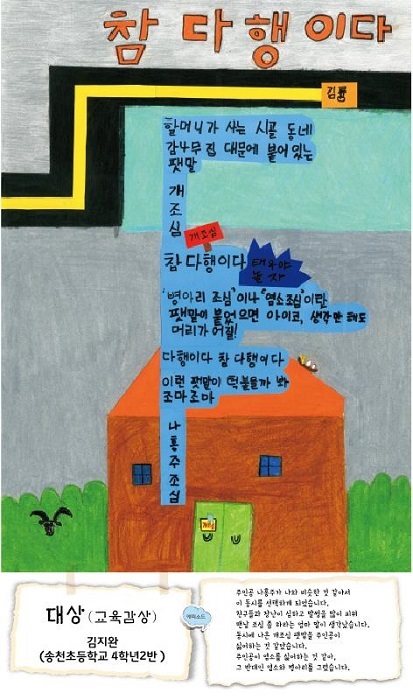 참 다행이다
김륭
할머니가 사는 시골 동네
감나무 집 대문에 붙어있는
팻말
개
조
심
개조심
참 다행이다
'병아리 조심'이나 "염소조심"이란
팻말이 붙었으면 아이코, 생각만 해도
머리가 어질!
다행이다 참 다행이다
이런 팻말이 떡붙을까 봐
조마조마
나
홍
주
조
심
대상 (교육감상)
김지완
(송천초등학교 4학년2반)
에피소드
주인공 나홍주가 나와 비슷한 것 같아서
이 동시를 선택하게 되었습니다.
친구들과 장난이 심하고 말썽을 많이 피워
맨날 조심 좀 하라는 엄마 말이 생각났습니다.
동시에 나온 개조심 팻말을 주인공이
싫어하는 것 같았습니다.
주인공이 염소를 싫어하는 것 같아,
그 반대인 염소와 병아리를 그렸습니다.